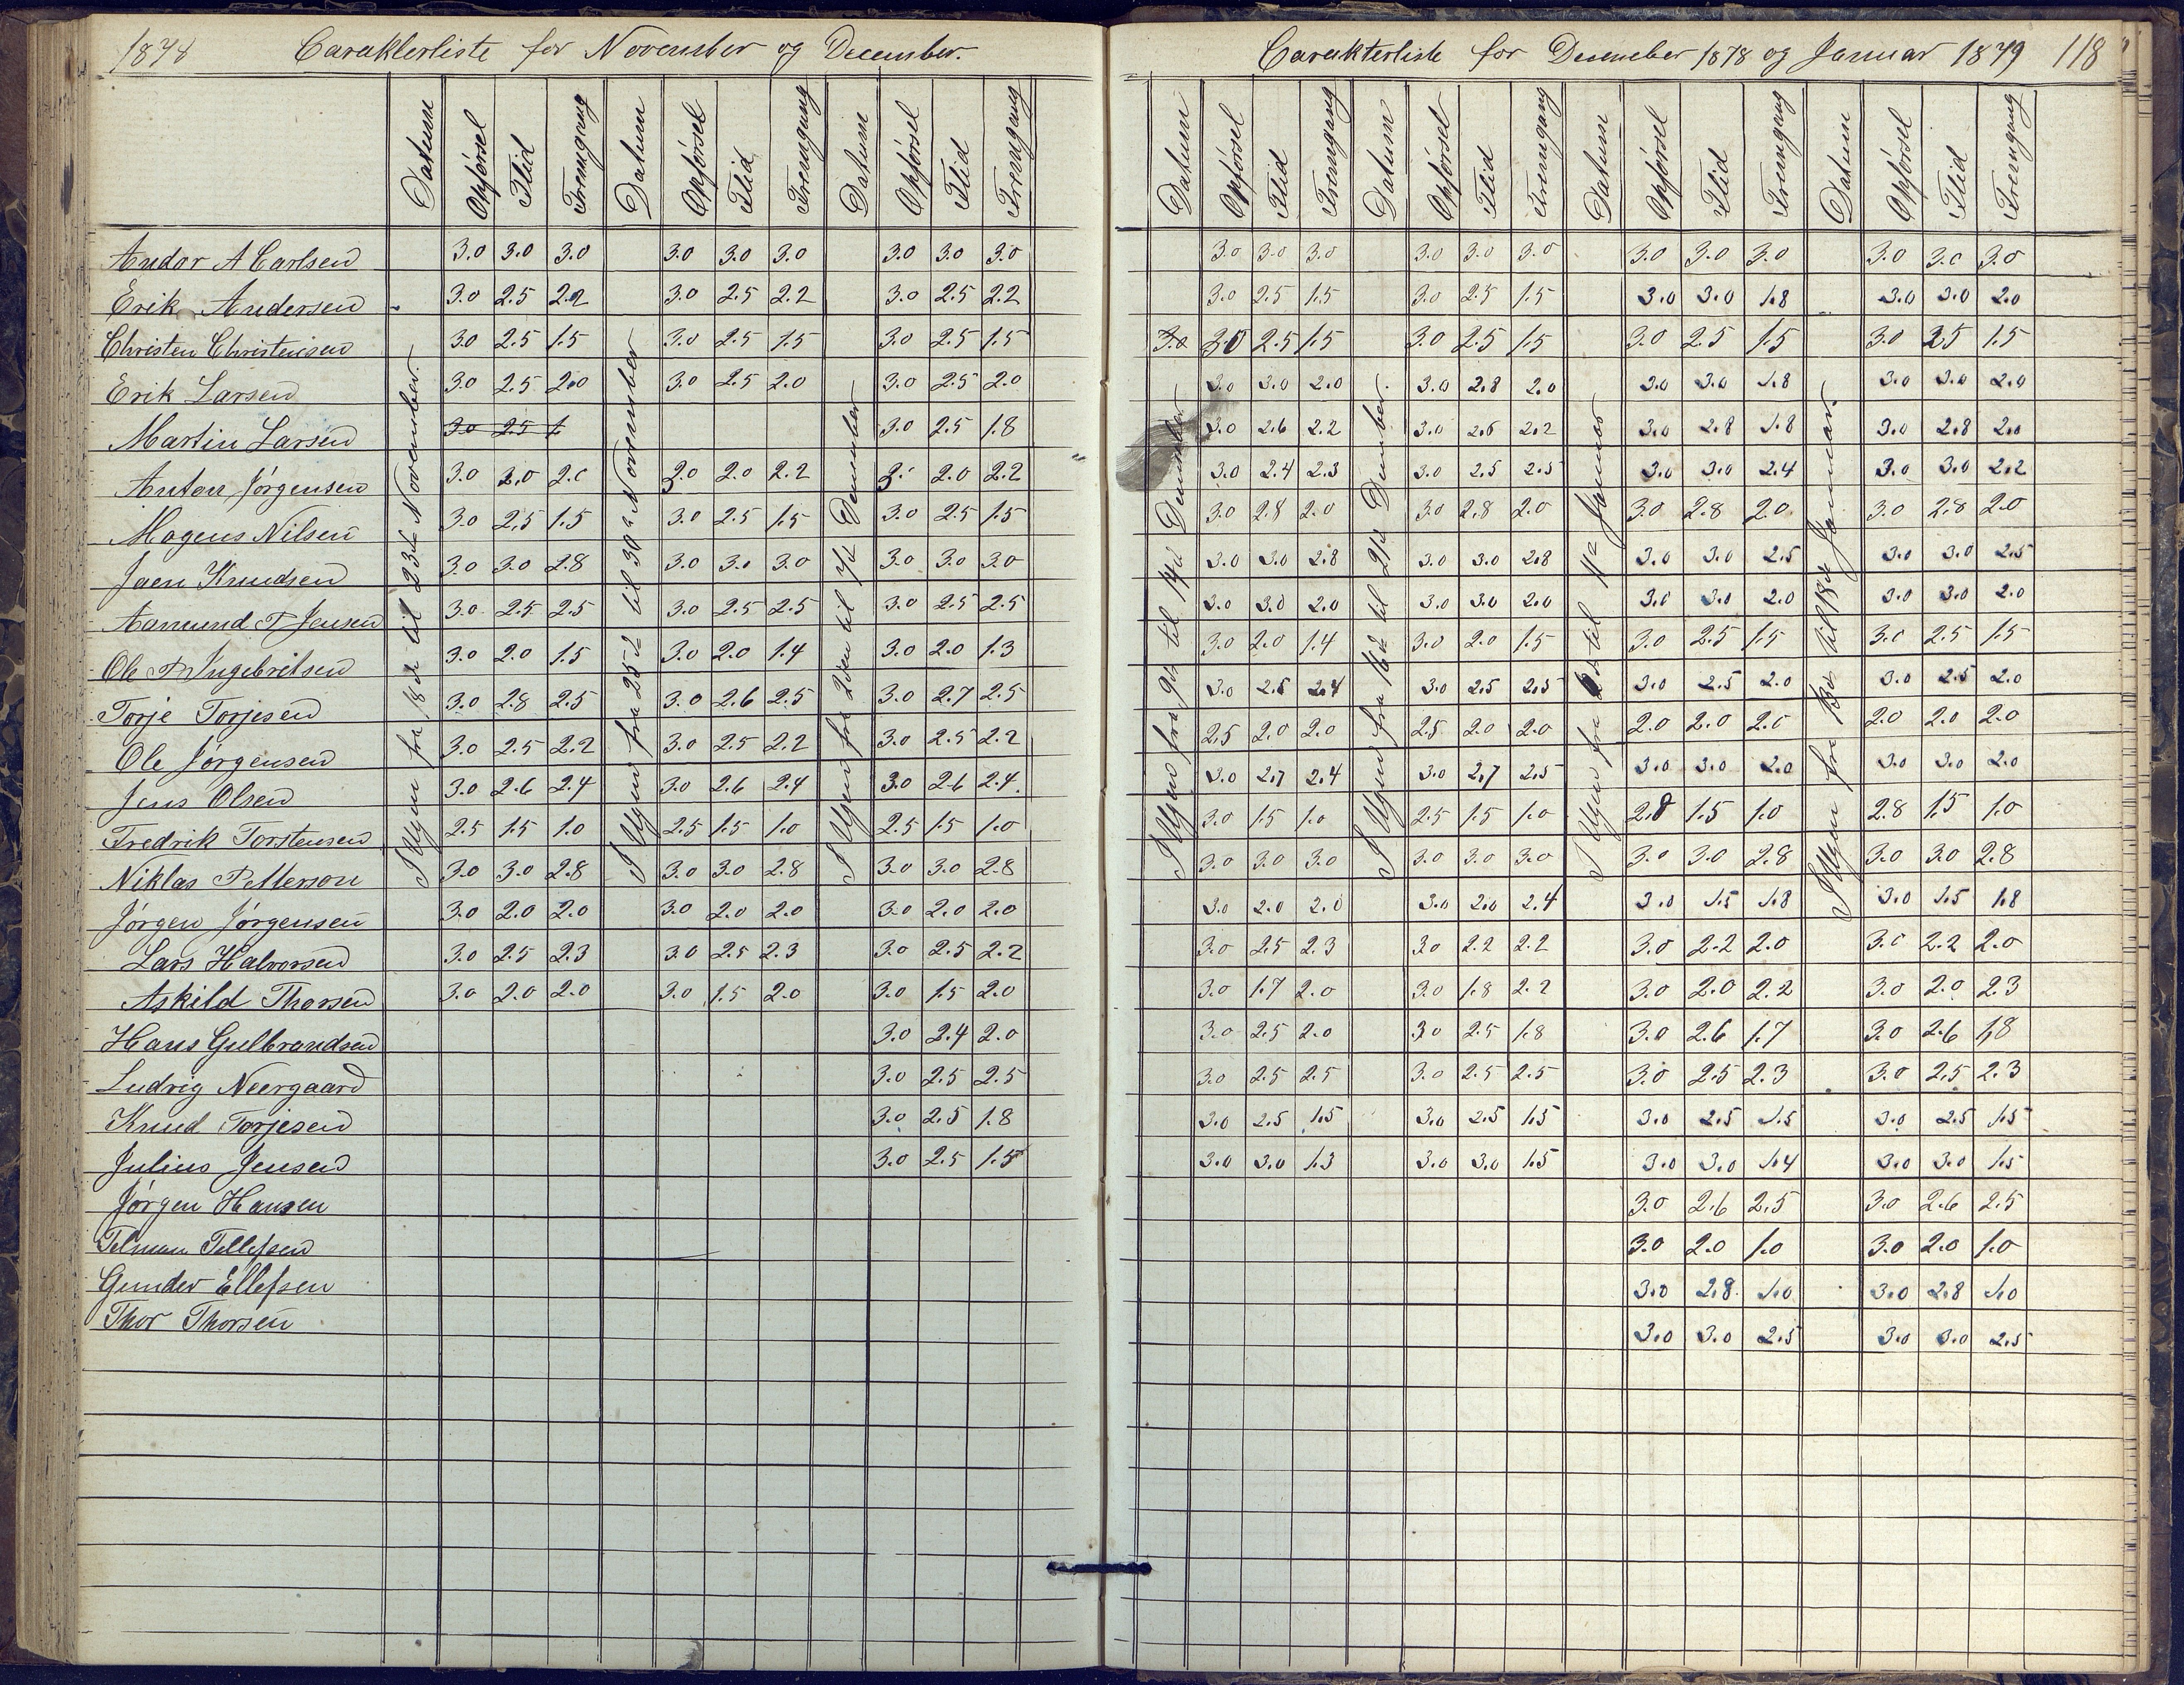 1878 Carakterliste for November og December.
Datum Opførsel Flid Fremgang Datum Opførsel Flid Fremgang Datum Opførsel Flid Fremgang
I Ugen fra 18de til 23de November.
I Ugen fra 25de til 30te November
I Ugen fra 2den til 7de December
Andor A Carlsen 3.0 3.0 3.0 3.0 3.0 3.0 3.0 3.0 3.0
Erik Andersen 3.0 2.5 2.2 3.0 2.5 2.2 3.0 2.5 2.2
Christen Christensen 3.0 2.5 1.5 3.0 2.5 1.5 3.0 2.5 1.5
Erik Larsen 3.0 2.5 2.0 3.0 2.5 2.0 3.0 2.5 2.0
Martin Larsen 3.0 2.5 1 3.0 2.5 1.8
Anton Jørgensen 3.0 2.0 2.0 3.0 2.0 2.2 3. 2.0 2.2
Mogens Nilsen 3.0 2.5 1.5 3.0 2.5 1.5 3.0 2.5 1.5
Jaen Knudsen 3.0 3.0 2.8 3.0 3.0 3.0 3.0 3.0 3.0
Aamund T Jensen 3.0 2.5 2.5 3.0 2.5 2.5 3.0 2.5 2.5
Ole Ingebritsen 3.0 2.0 1.5 3.0 2.0 1.4 3.0 2.0 1.3
Torje Torjesen 3.0 2.8 2.5 3.0 2.6 2.5 3.0 2.7 2.5
Ole Jørgensen 3.0 2.5 2.2 3.0 2.5 2.2 3.0 2.5 2.2
Jens Olsen 3.0 2.6 2.4 3.0 2.6 2.4 3.0 2.6 2.4
Fredrik Torstensen 2.5 1.5 1.0 2.5 1.5 1.0 2.5 1.5 1.0
Niklas Petterson 3.0 3.0 2.8 3.0 3.0 2.8 3.0 3.0 2.8
Jørgen Jørgensen 3.0 2.0 2.0 3.0 2.0 2.0 3.0 2.0 2.0
Lars Halvorsen 3.0 2.5 2.3 3.0 2.5 2.3 3.0 2.5 2.2
Askild Thorsen 3.0 2.0 2.0 3.0 1.5 2.0 3.0 1.5 2.0
Hans Gulbrandsen 3.0 2.4 2.0
Ludvig Neergaard 3.0 2.5 2.5
Knud Torjesen 3.0 2.5 1.8
Julius Jensen 3.0 2.5 1.5
Jørgen Hansen
Telman Tellefsen
Gunder Ellefsen
Thor Thorsen
Carakterliste for December 1878 og Januar 1879 118
Datum Opførsel Flid Fremgang Datum Opførsel Flid Fremgang Datum Opførsel Flid Fremgang Datum Opførsel Flid Fremgang
I Ugen fra 9de til 14de December
I Ugen fra 16de til 21de December.
I Ugen fra til 11te Januar
I Ugen fra 13de til 18de Januar.
3.0 3.0 3.0 3.0 3.0 3.0 3.0 3.0 3.0 3.0 3.0 3.0
3.0 2.5 1.5 3.0 2.5 1.5 3.0 3.0 1.8 3.0 3.0 2.0
3.0 3.0 2.5 1.5 3.0 2.5 1.5 3.0 2.5 1.5 3.0 2.5 1.5
3.0 3.0 2.0 3.0 2.8 2.0 3.0 3.0 1.8 3.0 3.0 2.0
3.0 2.6 2.2 3.0 2.6 2.2 3.0 2.8 1.8 3.0 2.8 2.0
3.0 2.4 2.3 3.0 2.5 2.5 3.0 3.0 2.4 3.0 3.0 2.2
3.0 2.8 2.0 3.0 2.8 2.0 3.0 2.8 2.0 3.0 2.8 2.0
3.0 3.0 2.8 3.0 3.0 2.8 3.0 3.0 2.5 3.0 3.0 2.5
3.0 3.0 2.0 3.0 3.0 2.0 3.0 3.0 2.0 3.0 3.0 2.0
3.0 2.0 1.4 3.0 2.0 1.5 3.0 2.5 1.5 3.0 2.5 1.5
3.0 2.6 2.4 3.0 2.5 2.5 3.0 2.5 2.0 3.0 2.5 2.0
2.5 2.0 2.0 2.5 2.0 2.0 2.0 2.0 2.0 2.0 2.0 2.0
3.0 2.7 2.4 3.0 2.7 2.5 3.0 3.0 2.0 3.0 3.0 2.0
3.0 1.5 1.0 2.5 1.5 1.0 2.8 1.5 1.0 2.8 1.5 1.0
3.0 3.0 3.0 3.0 3.0 3.0 3.0 3.0 2.8 3.0 3.0 2.8
3.0 2.0 2.0 3.0 2.0 2.4 3.0 1.5 1.8 3.0 1.5 1.8
3.0 2.5 2.3 3.0 2.2 2.2 3.0 2.2 2.0 3.0 2.2 2.0
3.0 1.7 2.0 3.0 1.8 2.2 3.0 2.0 2.2 3.0 2.0 2.3
3.0 2.5 2.0 3.0 2.5 1.8 3.0 2.6 1.7 3.0 2.6 1.8
3.0 2.5 2.5 3.0 2.5 2.5 3.0 2.5 2.3 3.0 2.5 2.3
3.0 2.5 1.5 3.0 2.5 1.5 3.0 2.5 1.5 3.0 2.5 1.5
3.0 3.0 1.3 3.0 3.0 1.5 3.0 3.0 1.4 3.0 3.0 1.5
3.0 2.6 2.5 3.0 2.6 2.5
3.0 2.0 1.0 3.0 2.0 1.0
3.0 2.8 1.0 3.0 2.8 1.0
3.0 3.0 2.5 3.0 3.0 2.5